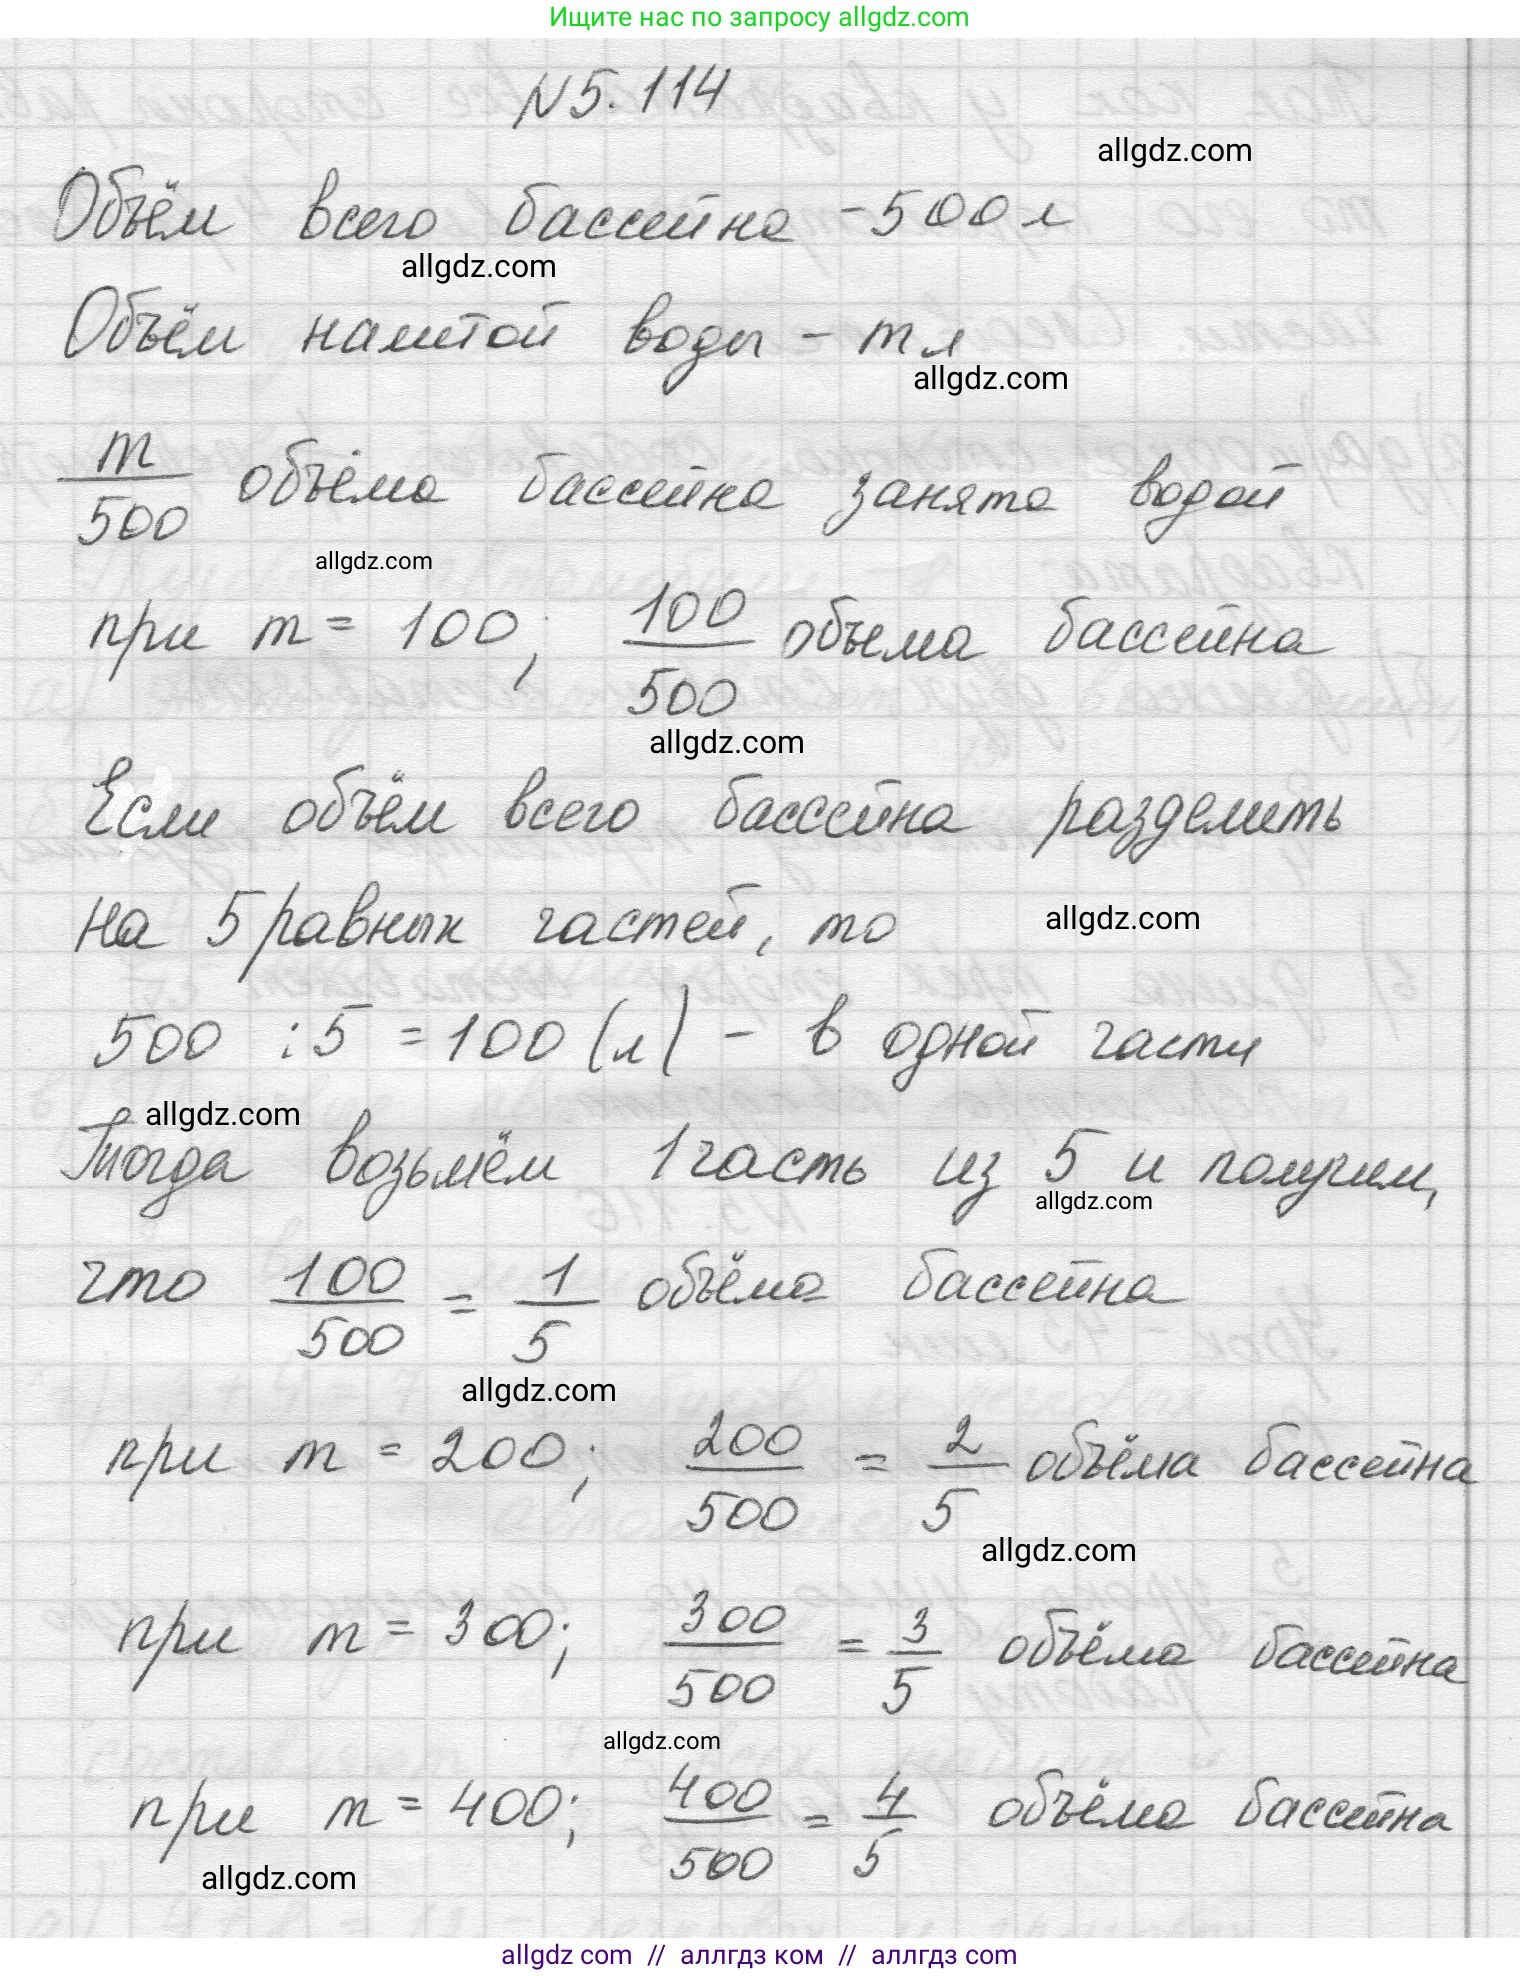 Ищите нас по запросу allgdz.com
N 5.114
allgdz.com
Объём всего бассейна - 500 л
allgdz.com
Объём налитой воды - m л
allgdz.com
m/500 объёма бассейна занята водой
allgdz.com
при m = 100; 100/500 объема бассейна
allgdz.com
Если объём всего бассейна разделить
на 5 равных частей, то
allgdz.com
500 : 5 = 100 (л) - в одной части
allgdz.com
Тогда возьмём 1 часть из 5 и получим,
allgdz.com
что 100/500 = 1/5 объёма бассейна
allgdz.com
при m = 200; 200/500 = 2/5 объёма бассейна
allgdz.com
при m = 300; 300/500 = 3/5 объёма бассейна
allgdz.com
при m = 400; 400/500 = 4/5 объёма бассейна
allgdz.com
allgdz com // аллгдз ком // аллгдз com